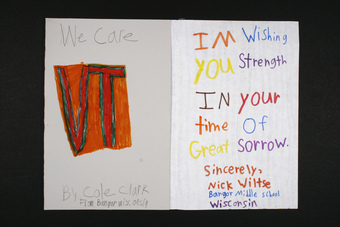 We Care
VT
By, Cole Clark
From Bangor
I'M Wishing
you Strength
IN your
time Of
Great Sorrow.
Sincerely,
Nick Wiltse
Bangor Middle School
Wisconsin